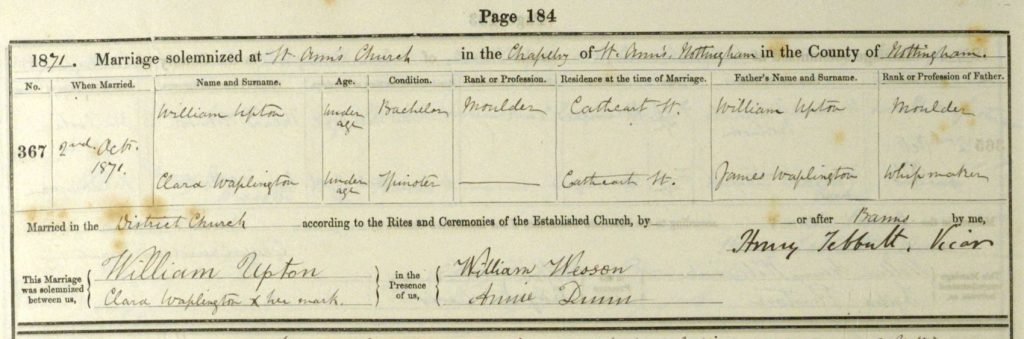 Page 184
1871. Marriage solemnized at St. Ann's Church in the Chapelry of St. Ann's, Nottingham in the County of Nottingham.
No. When Married. Name and Surname. Age. Condition. Rank or Profession. Residence at the time of Marriage. Father's Name and Surname. Rank or Profession of Father.
William Upton under age Bachelor Moulder Cathcart St. William Upton Moulder
367 2nd. Oct. 1871.
Clara Waplington under age Spinster Cathcart St. James Waplington Whip maker
Married in the District Church according to the Rites and Ceremonies of the Established Church, by or after Banns by me,
Henry Tebbutt, Vicar
This Marriage was solemnized between us, William Upton in the Presence of us, William Wesson
Clara Waplington x her mark. Annie Dunn